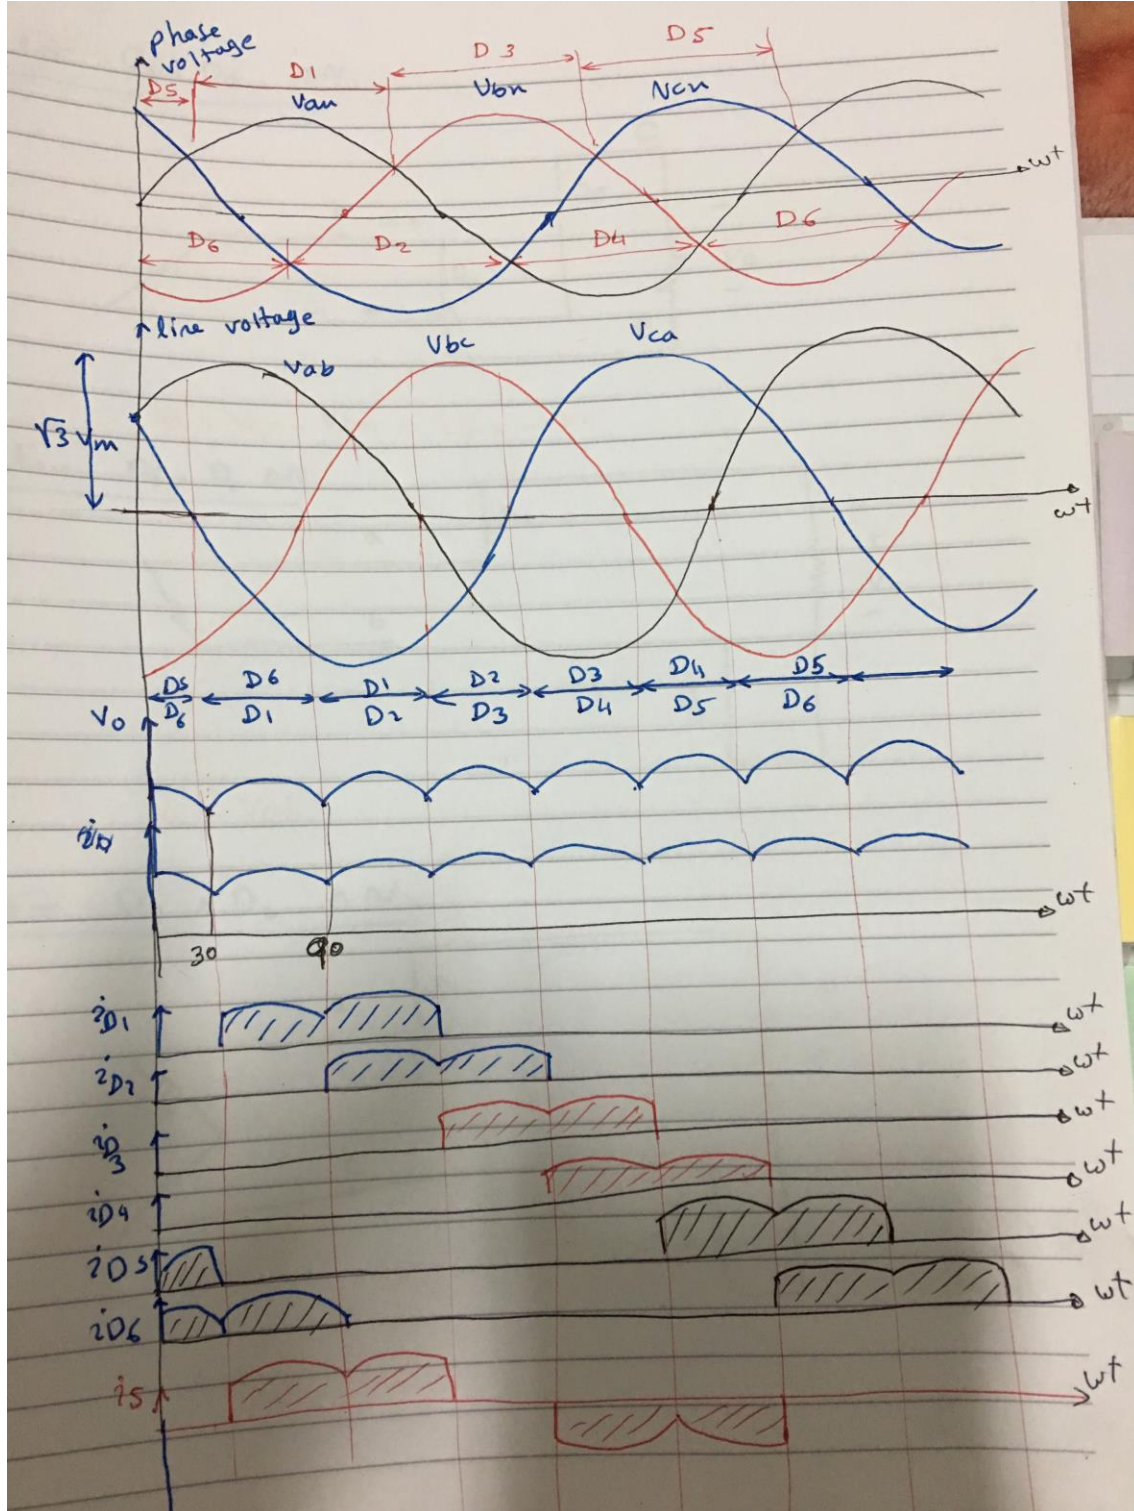 phase
voltage
D5
D1
D3
D5
Van
Vbn
Vcn
ωt
D6
D2
D4
D6
line voltage
Vab
Vbc
Vca
√3 Vm
ωt
D5 D6 D1 D2 D3 D4 D5
D6 D1 D2 D3 D4 D5 D6
Vo
ωt
30 90
iD1
ωt
iD2
ωt
iD3
ωt
iD4
ωt
iD5
ωt
iD6
ωt
is
ωt